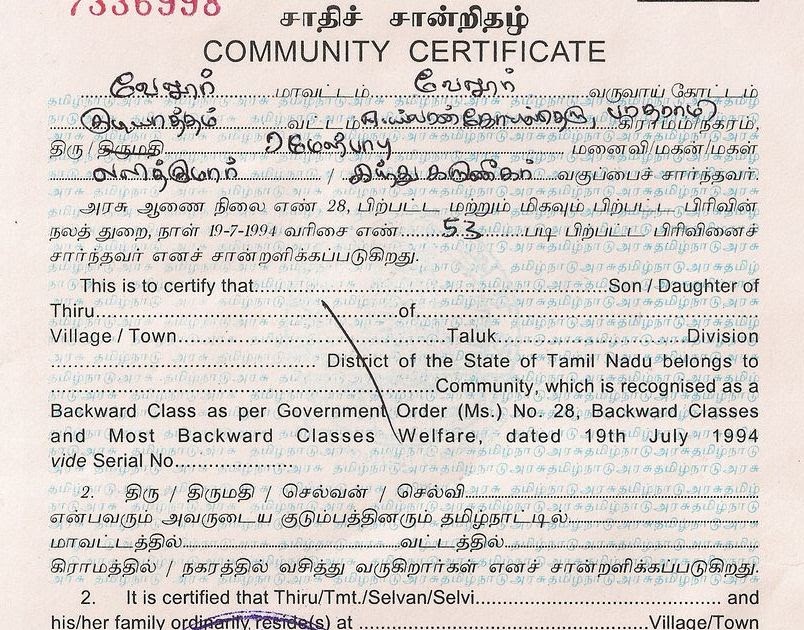 7336998
சாதிச் சான்றிதழ்
COMMUNITY CERTIFICATE
வேலூர் மாவட்டம் வேலூர் வருவாய் கோட்டம்
குடியாத்தம் வட்டம் கிராமம்/நகரம்,
திரு / திருமதி ரமேஷ்பாபு மனைவி/மகன்/மகள்
லலித்குமார் / இந்து கருணீகர் வகுப்பைச் சார்ந்தவர்.
அரசு ஆணை நிலை எண் 28, பிற்பட்ட மற்றும் மிகவும் பிற்பட்ட பிரிவின்
நலத் துறை, நாள் 19-7-1994 வரிசை எண்........53........படி பிற்பட்ட பிரிவினைச்
சார்ந்தவர் எனச் சான்றளிக்கப்படுகிறது.
This is to certify that........................Son / Daughter of
Thiru........................of........................
Village / Town........................Taluk........................Division
........................ District of the State of Tamil Nadu belongs to
........................Community, which is recognised as a
Backward Class as per Government Order (Ms.) No. 28, Backward Classes
and Most Backward Classes Welfare, dated 19th July 1994
vide Serial No.....................
2. திரு / திருமதி / செல்வன் / செல்வி........................
என்பவரும் அவருடைய குடும்பத்தினரும் தமிழ்நாட்டில்........................
மாவட்டத்தில்........................வட்டத்தில்........................
கிராமத்தில் / நகரத்தில் வசித்து வருகிறார்கள் எனச் சான்றளிக்கப்படுகிறது.
2. It is certified that Thiru/Tmt./Selvan/Selvi........................ and
his/her family ordinarily reside(s) at ........................Village/Town